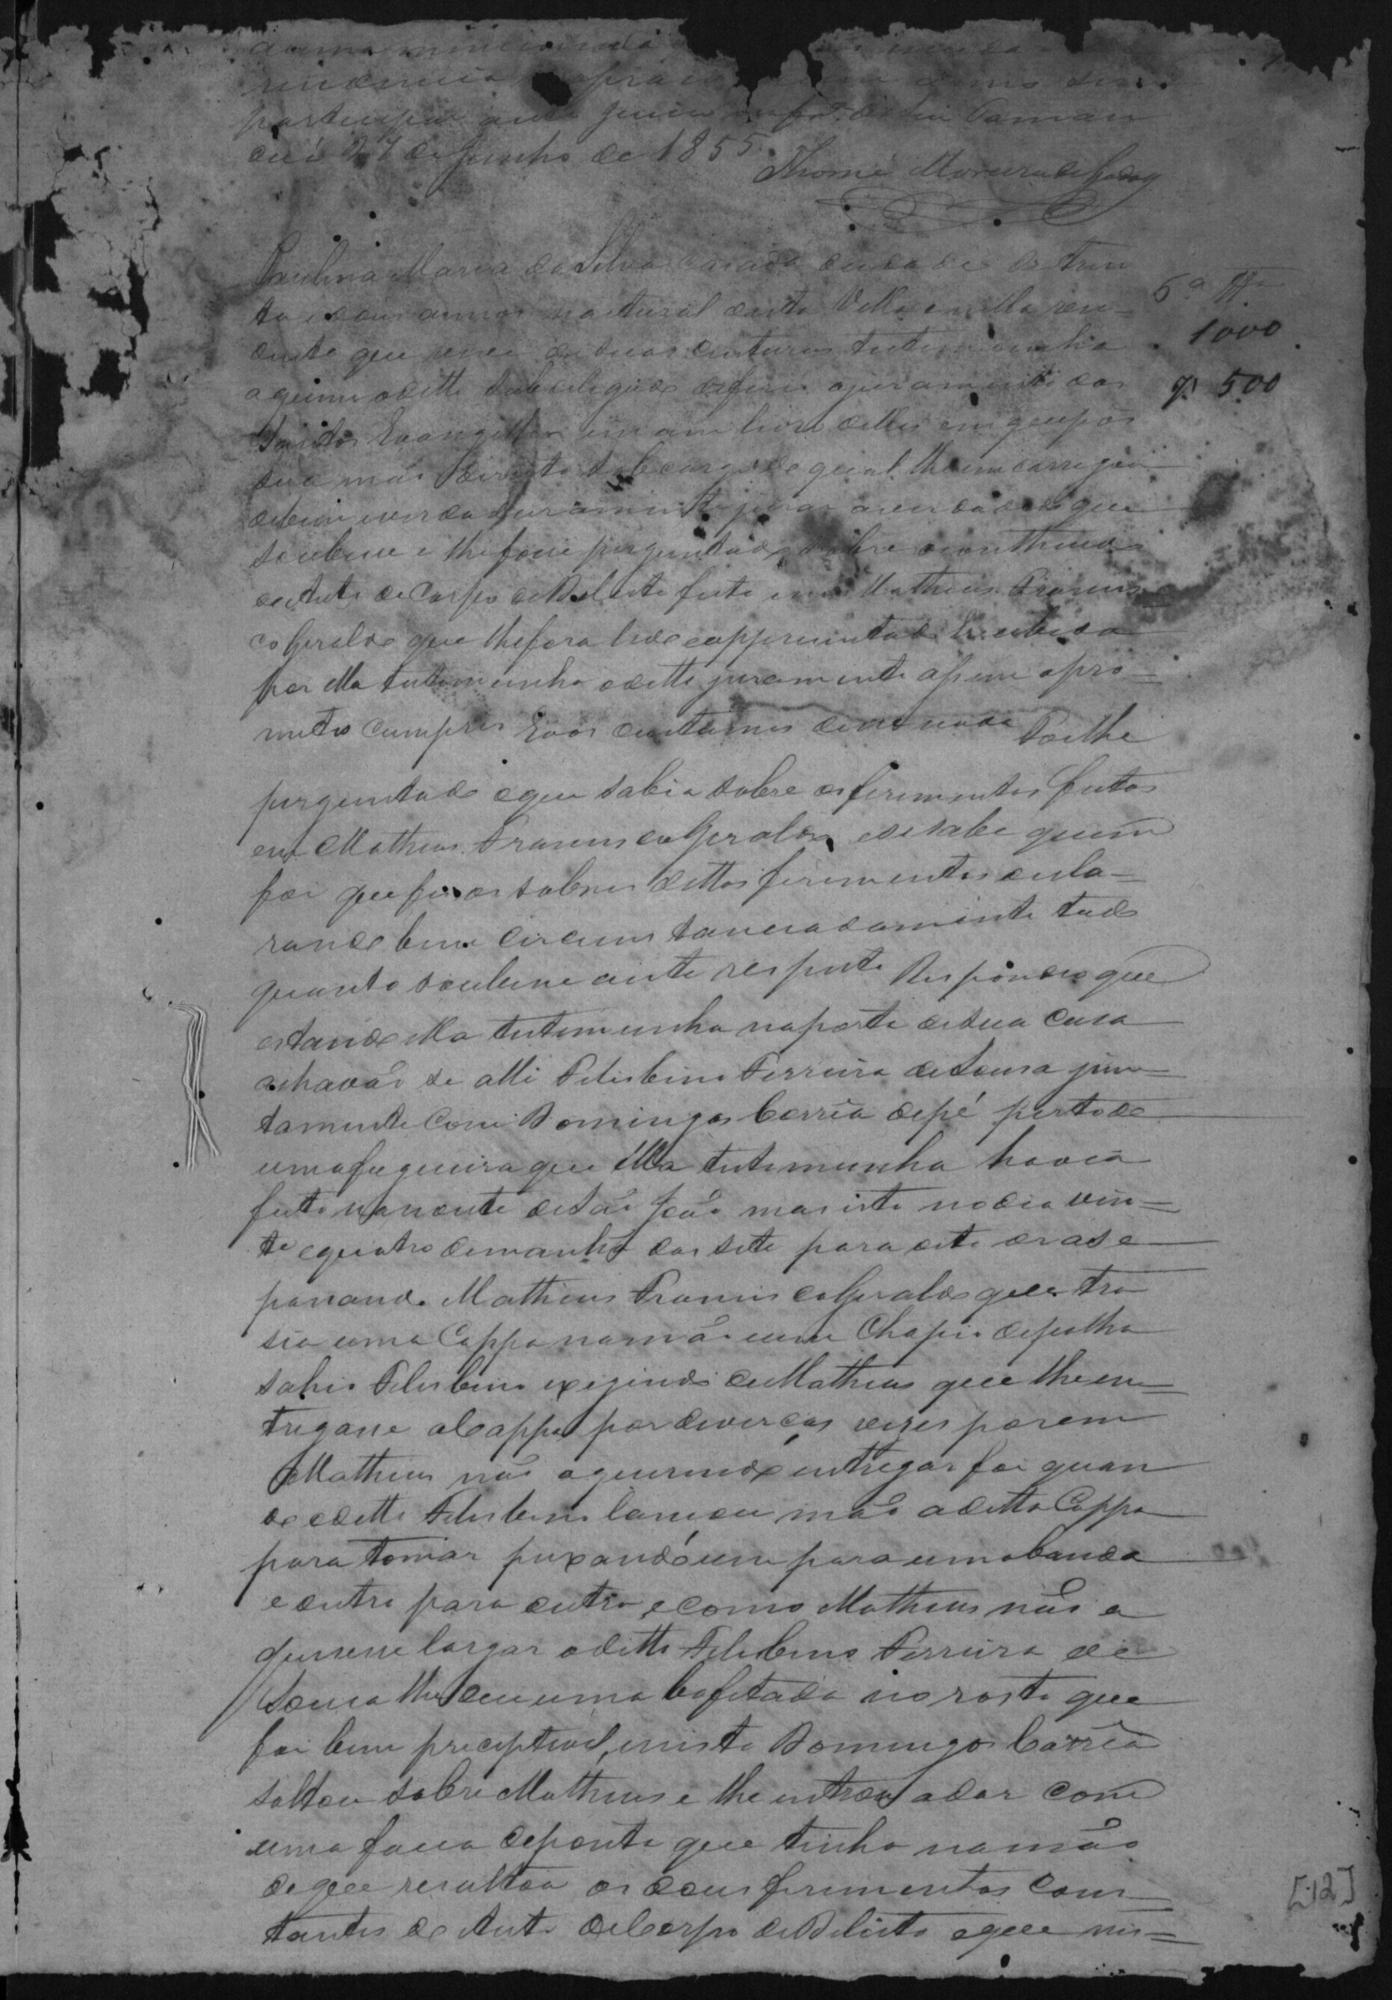 participar
27 de Junho de 1855
Thomé Moreira de Godoy
Paulina Maria da Silva casada de idade de trin
ta e dous annos natural desta Villa em lla resi=
dente que vive de suas custuras testemunha
5ª Tª
1000
500
aquem o ditto Subdelegado deferio o juramento dos
Santos Evangelhos em um livro delles em que pos
sua mão direita sob cargo do qual lhe encarregou
de bem verdadeiramente jurar a verdade do que
soubesse e lhe fosse perguntado sobre o conthiudo
do Auto de Corpo de Delicto feito em Matheus Francis
co Geraldo que lhe fora lido e appresentado E recebido
por ella testemunha o ditto juramento assim o pro=
meteo cumprir E aos costumes disse nada Foi lhe
perguntado o que sabia sobre os ferimentos feitos
em Matheus Francisco Geraldo, e se sabe quem
foi que fes os sobreditos ferimentos decla=
rando bem circunstanciadamente tudo
quanto soubesse a este respeito Respondeo que
estando ella testemunha na porta de sua casa
achavão se alli Felisbino Ferreira de Sousa jun=
tamente com Domingos Corrêa de pé perto de
uma fugueira que ella testemunha havia
feito na noute de São João mas isto no dia vin=
te e quatro de manhã das sete para oito oras e
passando Matheus Francisco Geraldo que tra
sia uma Cappa na mão e um Chapeo de palha
sahio Felisbino exigindo de Matheus que lhe en=
tregasse a Cappa por diverças veses porem
Matheus não a querendo entregar foi quan
do o ditto Felisbino lançou mão a ditta Cappa
para tomar puxando um para uma banda
e outro para outra, e como Matheus não a
quisesse largar o ditto Felisbino Ferreira de
Sousa lhe deu uma bofetada no rosto que
foi bem preceptivel, e nisto Domingos Corrêa
saltou sobre Matheus e lhe entrou a dar com
uma faca de ponta que tinha na mão
do que resultou os dous ferimentos cons
tantes do Auto de Corpo de Delicto e que nis=
[12]